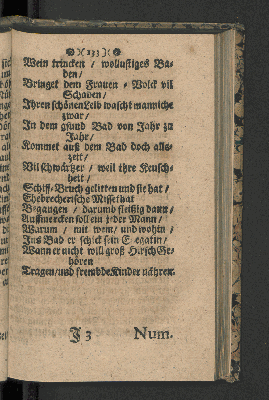 )( 133 )(
Wein trincken / wollustiges Ba-
den /
Bringet dem Frauen-Volck vil
Schaden /
Ihren schönen Leib wascht manniche
zwar /
In dem gsund Bad von Jahr zu
Jahr /
Kommet auß dem Bad doch alle-
zeit /
Vil schwärtzer / weil ihre Keusch-
heit /
Schiff-Bruch gelitten und sie hat /
Ehebrecherische Missethat
Begangen / darumb fleissig dann /
Auffmercken soll ein jeder Mann /
Warum / mit wem / und wohin /
Ins Bad er schick sein
Wann er nicht will groß Hirsch Ge-
hören
Tragen / und frembde Kinder nähren.
J 3 Num.